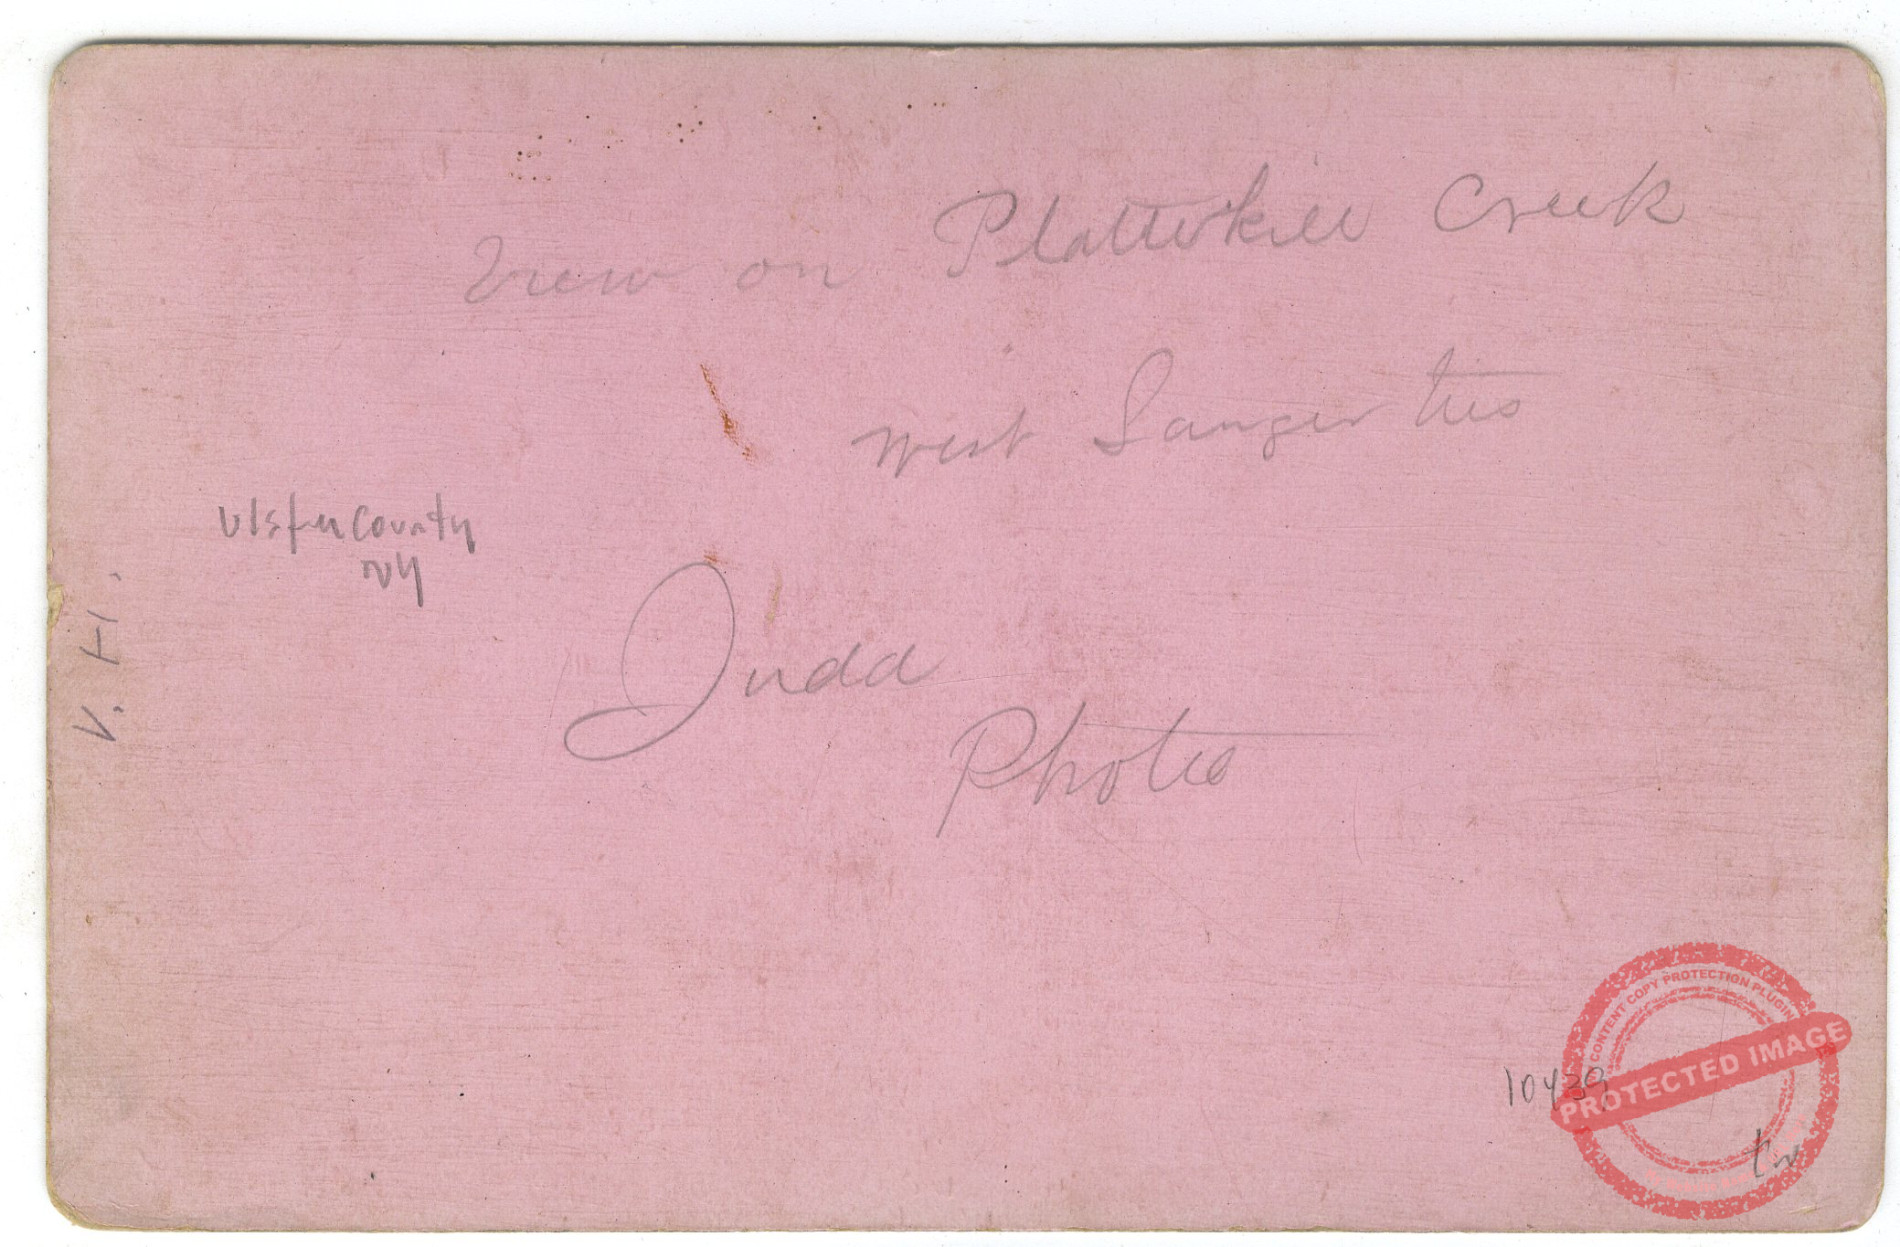 View on Platterkill Creek
West Saugerties
Ulster County
NY
V. H.
Judd
Photo
CONTENT COPY PROTECTION PLUGIN
PROTECTED IMAGE
10439